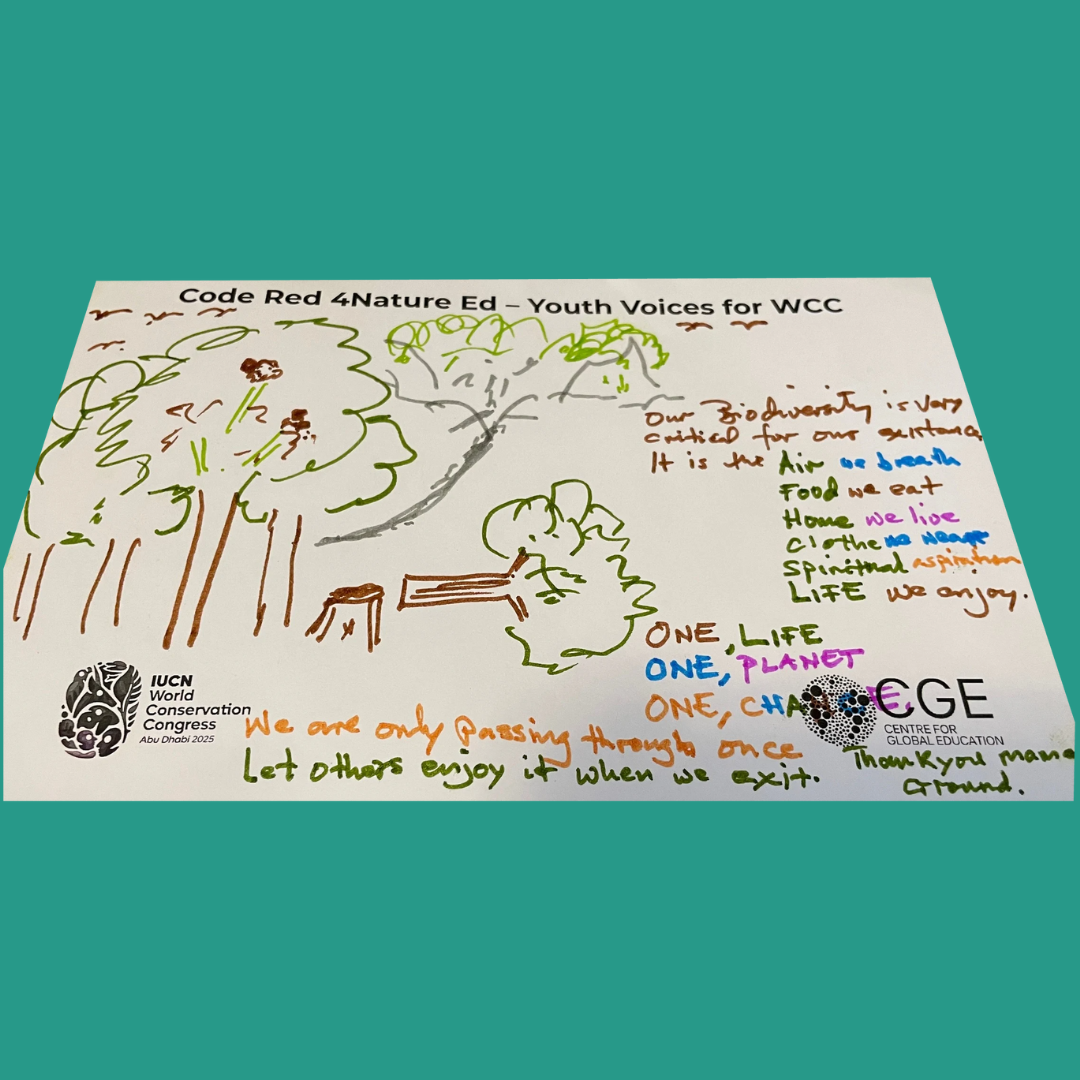 Code Red 4Nature Ed – Youth Voices for WCC
Our Biodiversity is very
critical for our
It is the Air we breath
Food we eat
Home we live
Clothe we
Spiritual aspiration
LIFE we enjoy.
ONE, LIFE
ONE, PLANET
ONE, CHA
We are only passing through once
Let others enjoy it when we exit.
Thank you mama
Ground.
IUCN
World
Conservation
Congress
Abu Dhabi 2025
CGE
CENTRE FOR
GLOBAL EDUCATION